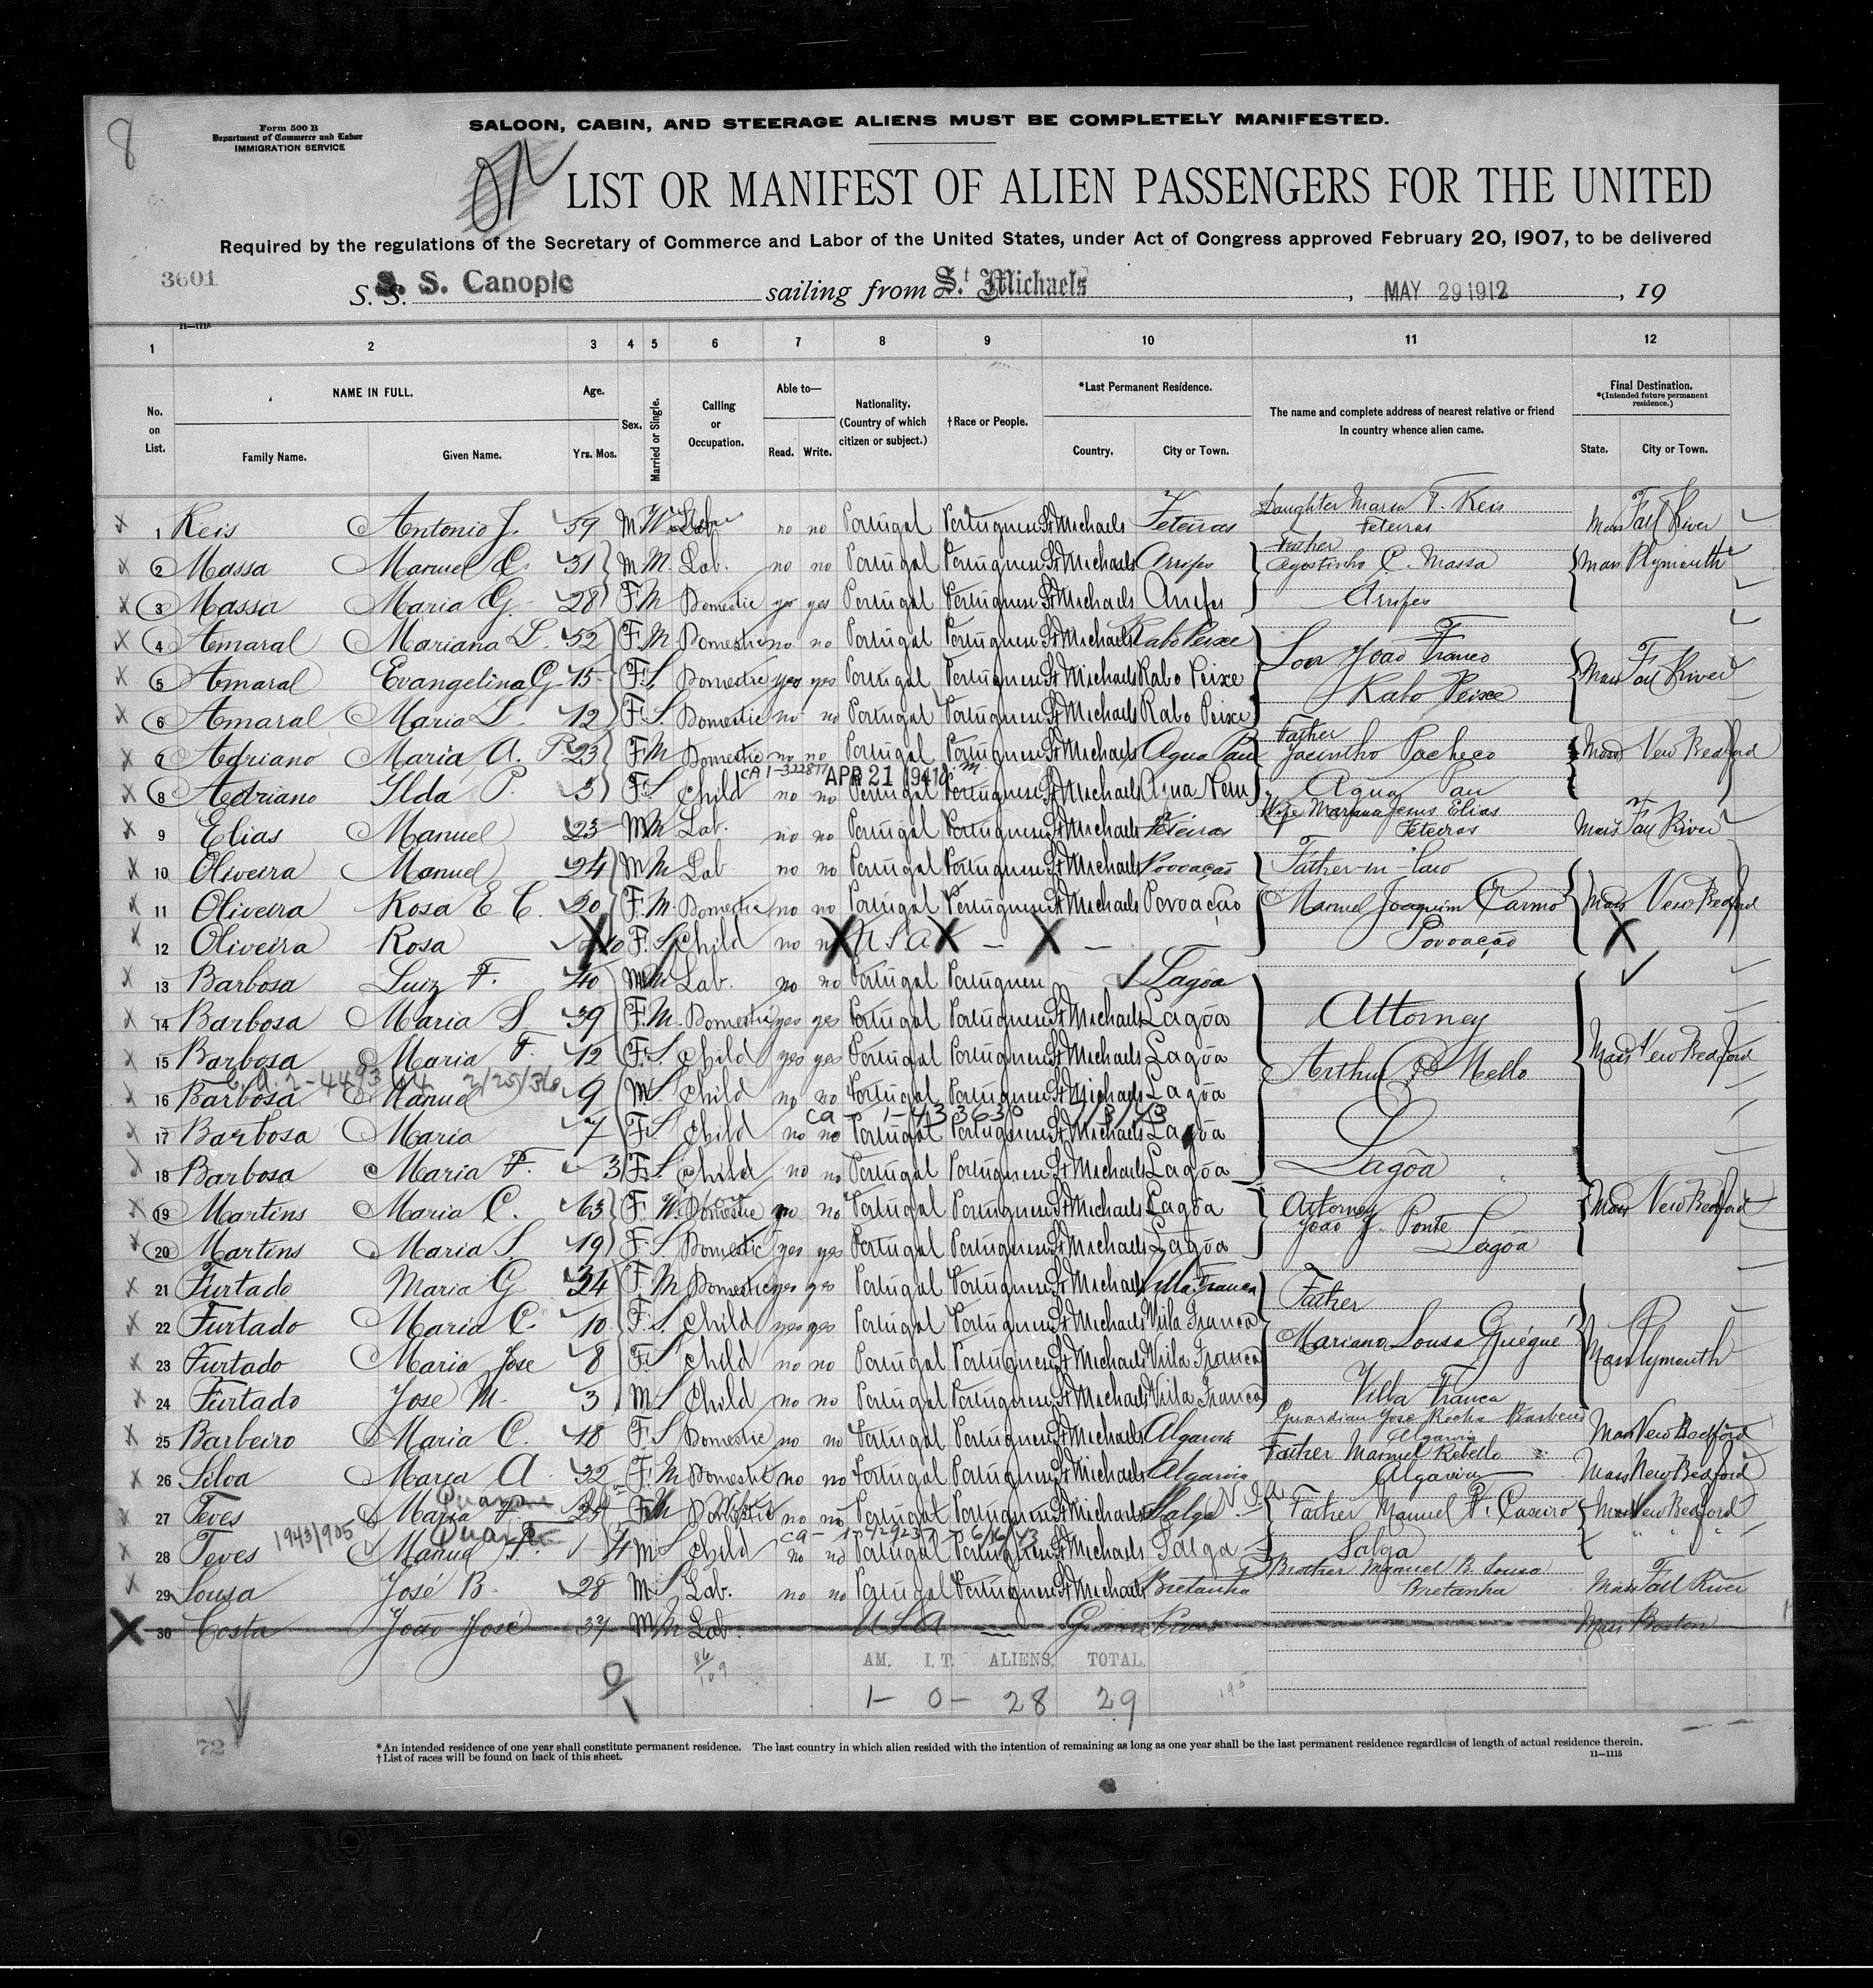 8
Form 500 B
Department of Commerce and Labor
IMMIGRATION SERVICE
SALOON, CABIN, AND STEERAGE ALIENS MUST BE COMPLETELY MANIFESTED.
LIST OR MANIFEST OF ALIEN PASSENGERS FOR THE UNITED
Required by the regulations of the Secretary of Commerce and Labor of the United States, under Act of Congress approved February 20, 1907, to be delivered
3601
S. S. S. S. Canopic sailing from St Michaels, MAY 29 1912, 19
1 2 3 4 5 6 7 8 9 10 11 12
No. on List. NAME IN FULL. Family Name. Given Name. Age. Yrs. Mos. Sex. Married or Single. Calling or Occupation. Able to— Read. Write. Nationality. (Country of which citizen or subject.) †Race or People. *Last Permanent Residence. Country. City or Town. The name and complete address of nearest relative or friend in country whence alien came. Final Destination. *(Intended future permanent residence.) State. City or Town.
1 Reis Antonio J. 59 M W Lab no no Portugal Portuguese St Michaels Feteiras Daughter Maria T. Reis Feteiras Mass Fall River
2 Massa Manuel C. 31 M M Lab. no no Portugal Portuguese St Michaels Arrifes Father Agostinho C. Massa Mass Plymouth
3 Massa Maria G. 28 F M Domestic yes yes Portugal Portuguese St Michaels Arrifes Arrifes
4 Amaral Mariana L. 52 F M Domestic no no Portugal Portuguese St Michaels Rabo Peixe Son João Franco
5 Amaral Evangelina G 15 F S Domestic yes yes Portugal Portuguese St Michaels Rabo Peixe Rabo Peixe Mass Fall River
6 Amaral Maria L. 12 F S. Domestic no no Portugal Portuguese St Michaels Rabo Peixe
7 Adriano Maria A. P. 23 F M Domestic no no Portugal Portuguese St Michaels Agua Pau Father Jacintho Pacheco Mass New Bedford
CA 1-322877 APR 21 1941
8 Adriano Ilda P. 3 F S Child no no Portugal Portuguese St Michaels Agua Pau
9 Elias Manuel 23 M M Lab. no no Portugal Portuguese St Michaels Feteiras Wife Mariana Jesus Elias Feteiras Mass Fall River
10 Oliveira Manuel 24 M M Lab no no Portugal Portuguese St Michaels Povoação Father-in-law
11 Oliveira Rosa E. C. 20 F. M. Domestic no no Portugal Portuguese St Michaels Povoação Manuel Joaquim Carmo Mass New Bedford
12 Oliveira Rosa 10 F. S Child no no U S A — — Povoação
13 Barbosa Luiz F. 40 M M Lab. no no Portugal Portuguese Lagôa
14 Barbosa Maria S 39 F. M. Domestic yes yes Portugal Portuguese St Michaels Lagôa Attorney
15 Barbosa Maria F. 12 F. S. Child yes yes Portugal Portuguese St Michaels Lagôa Arthur Mello Mass New Bedford
2/25/36
16 Barbosa Manuel 9 M S. Child no no Portugal Portuguese St Michaels Lagôa
CA 1-433630
17 Barbosa Maria 7 F S Child no no Portugal Portuguese St Michaels Lagôa Lagôa
18 Barbosa Maria F. 3 F. S Child no no Portugal Portuguese St Michaels Lagôa
19 Martins Maria C. 63 F W. Domestic no no Portugal Portuguese St Michaels Lagôa Attorney João J. Ponte Mass New Bedford
20 Martins Maria S 19 F S. Domestic yes yes Portugal Portuguese St Michaels Lagôa Lagôa
21 Furtado Maria G 34 F. M Domestic yes yes Portugal Portuguese St Michaels Villa Franca Father
22 Furtado Maria C. 10 F. S. Child yes yes Portugal Portuguese St Michaels Villa Franca Mariano Sousa
23 Furtado Maria Jose 8 F. S Child no no Portugal Portuguese St Michaels Villa Franca Mass Plymouth
24 Furtado Jose M. 3 M S Child no no Portugal Portuguese St Michaels Villa Franca Villa Franca
25 Barbeiro Maria C. 18 F. S Domestic no no Portugal Portuguese St Michaels Algarvia Guardian Jose Rocha Barbeiro Algarvia Mass New Bedford
26 Silva Maria A. 32 F. M Domestic no no Portugal Portuguese St Michaels Algarvia Father Manuel Rebello Algarvia Mass New Bedford
Duarte
27 Teves Maria F. F M no no Portugal Portuguese St Michaels Salga Father Manuel F. Caseiro Mass New Bedford
1943/905 Duarte CA- 6/16/43
28 Teves Manuel 4 M S Child no no Portugal Portuguese St Michaels Salga Salga " " " "
29 Sousa José B. 28 M S Lab. no no Portugal Portuguese St Michaels Bretanha Brother Manuel B. Sousa Bretanha Mass Fall River
30 Costa João José 37 M M Lab. U S A — Mass Boston
86/109 AM. I.T. ALIENS. TOTAL.
1- 0- 28 29
72
*An intended residence of one year shall constitute permanent residence. The last country in which alien resided with the intention of remaining as long as one year shall be the last permanent residence regardless of length of actual residence therein.
†List of races will be found on back of this sheet.
11—1115